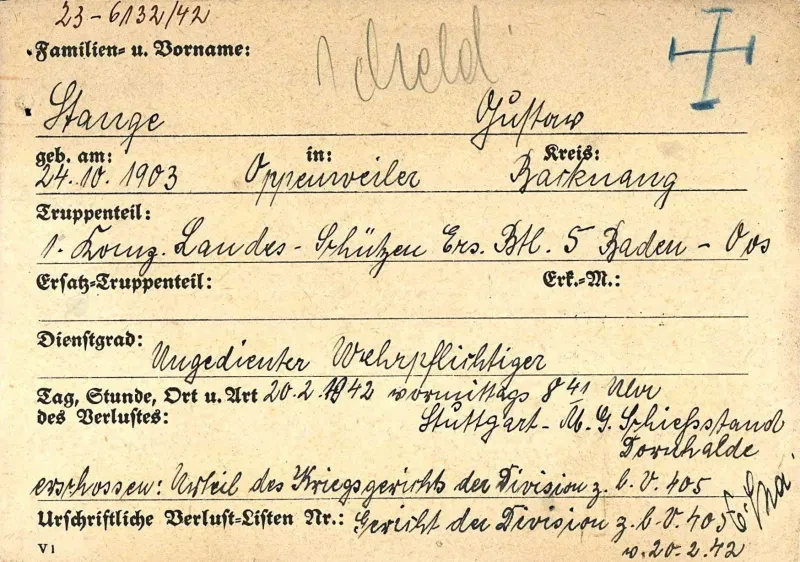 23-6132/42
Familien- u. Vorname:
Stange Gustav
geb. am: in: Kreis:
24.10.1903 Oppenweiler Backnang
Truppenteil:
1. Komp. Landes-Schützen Ers. Btl. 5 Baden-Oos
Ersatz-Truppenteil: Erk.-M.:
Dienstgrad:
Ungedienter Wehrpflichtiger
Tag, Stunde, Ort u. Art 20.2.1942 vormittags 8 41 Uhr
des Verlustes: Stuttgart- M.G. Schießstand
Dornhalde
erschossen: Urteil des Kriegsgerichts der Division z.b.V. 405
Urschriftliche Verlust-Listen Nr.: Gericht der Division z.b.V. 405
v. 20.2.42
V 1